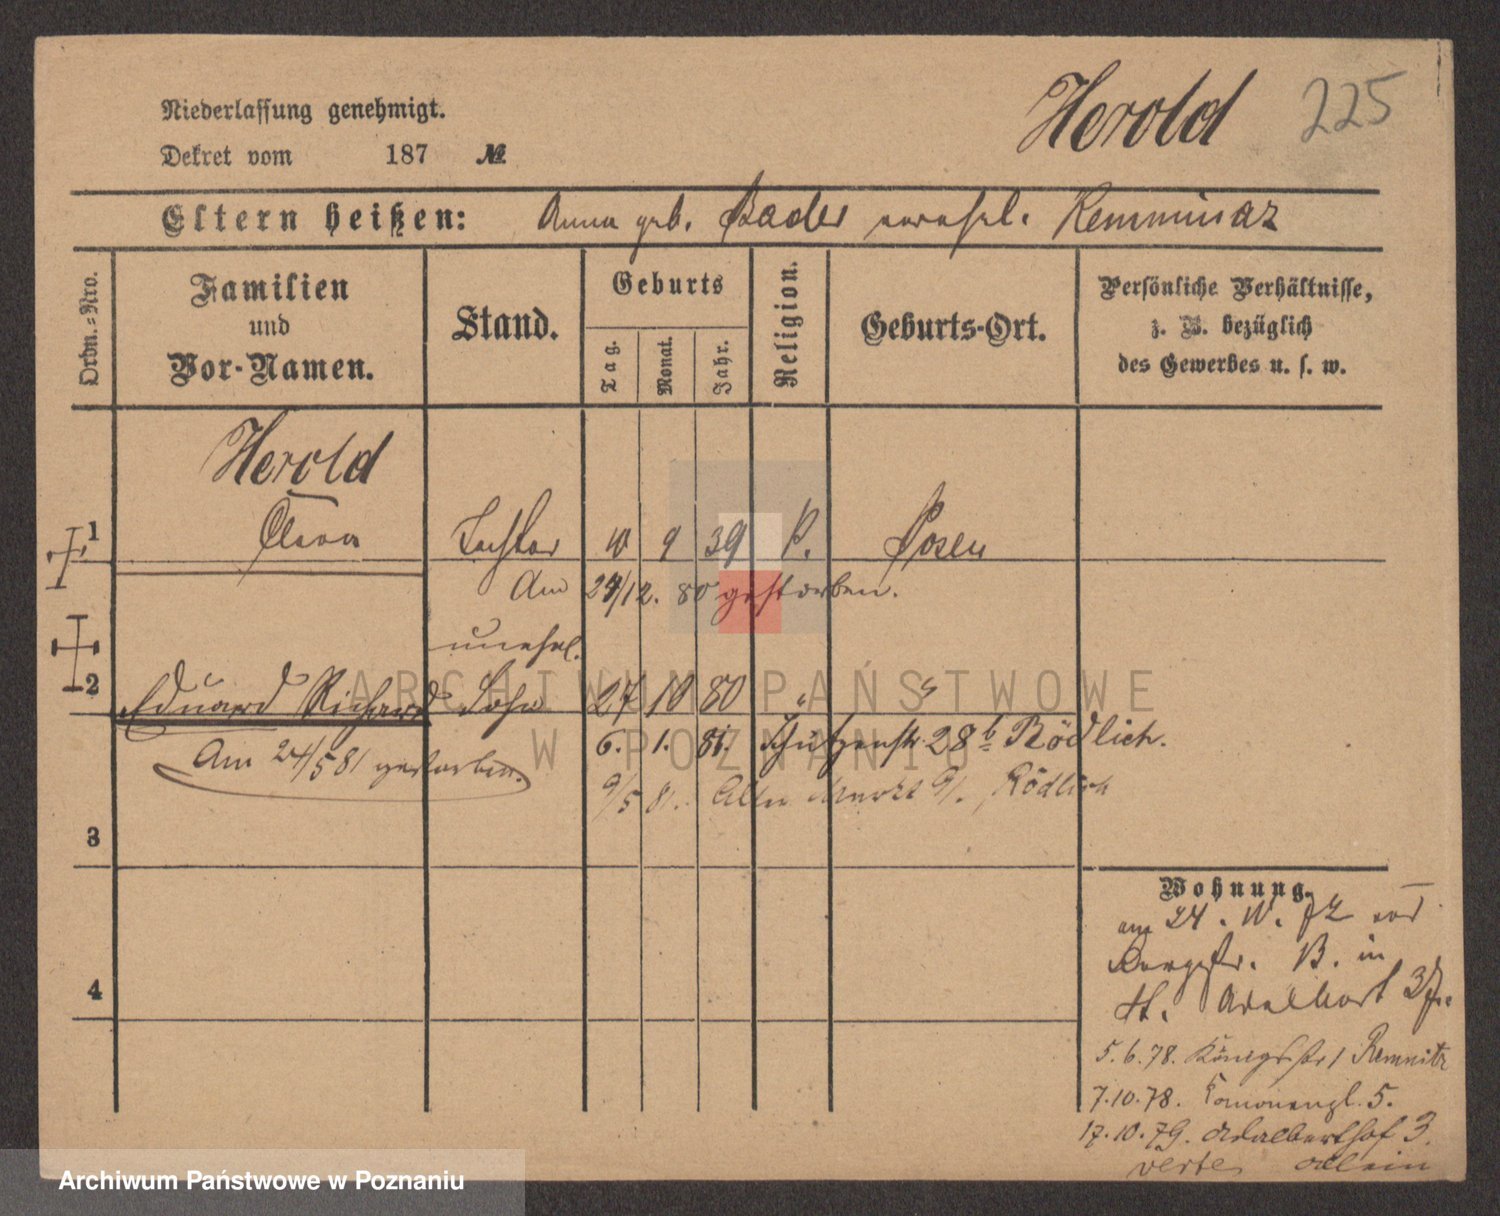 Herold 225
Niederlassung genehmigt.
Dekret vom 187 №
Eltern heißen: Anna geb. Bader verehel. Remminaz
Ordn.-Nro.
Familien und Vor-Namen.
Stand.
Geburts
Tag. Monat. Jahr.
Religion.
Geburts-Ort.
Persönliche Verhältnisse,
z. B. bezüglich
des Gewerbes u. s. w.
Herold
1 Clara Tochter 10 9 39 P. Posen
Am 24/12. 80 gestorben.
unehel.
2 Eduard Richard Sohn 27 10 80 " "
6. 1. 81. Schützenstr. 28b Rödlich.
Am 24/5 81 gestorben.
9/5 81. Alter Markt 91. Rödlich
3
4
Wohnung.
am 24. 10. 72 von
B. in
St. Adalbert 37
5.6.78. Königsstr 1 Remnitz
7.10.78. 5.
17.10.79. Adalberthof 3.
verte allein
ARCHIWUM PAŃSTWOWE
W POZNANIU
Archiwum Państwowe w Poznaniu